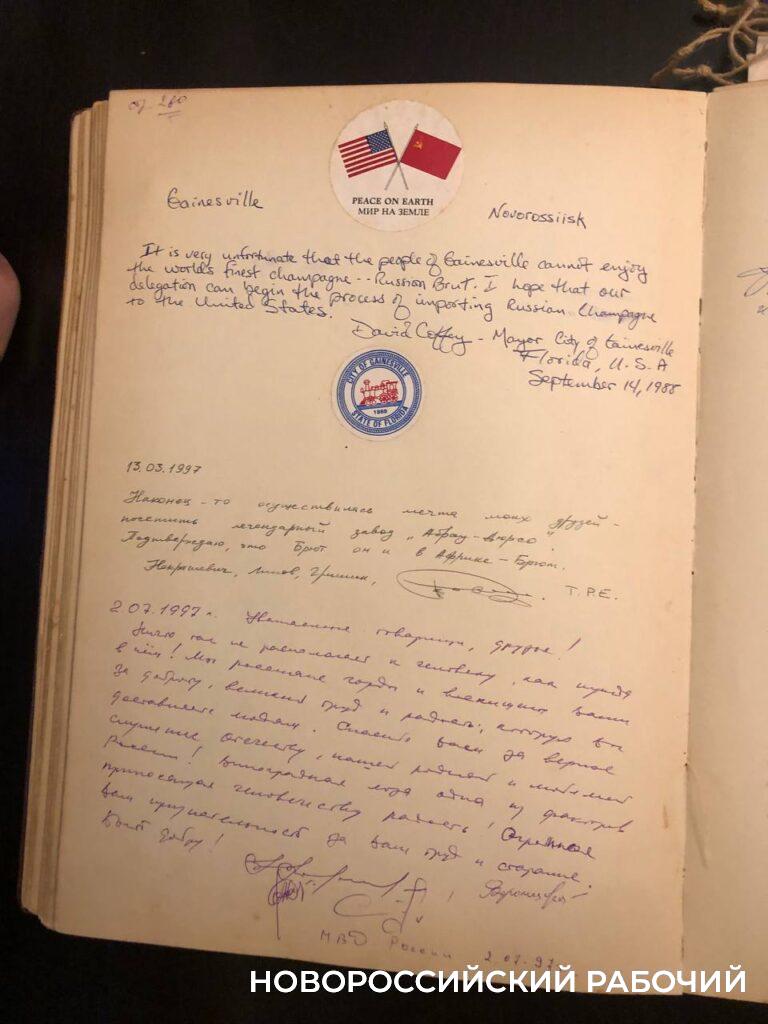 стр. 280
PEACE ON EARTH
МИР НА ЗЕМЛЕ
Gainesville
Novorossiisk
It is very unfortunate that the people of Gainesville cannot enjoy
the worlds finest champagne -- Russian Brut. I hope that our
delegation can begin the process of importing Russian Champagne
to the United States.
David Coffey - Mayor City of Gainesville
Florida, U.S.A
September 14, 1988
CITY OF GAINESVILLE
1869
STATE OF FLORIDA
13.03.1997
Наконец-то осуществилась мечта моих друзей -
посетить легендарный завод "Абрау-Дюрсо".
Подтверждаю, что Брют он и в Африке - Брют.
Некрашевич, Гришин,
T.P.E.
2.07.1997г. Уважаемые товарищи, друзья!
Ничто так не располагает к человеку, как
в нём! Мы россияне горды и восхищены Вами
за доброту, великий труд и радость, которую вы
доставляете людям. Спасибо вам за верное
служение отечеству, нашей родной и любимой
России! Виноградная лоза один из факторов
приносящая человечеству радость! Огромная
Вам признательность за Ваш труд и старание.
Быть добру!
МВД России 2.07.97
НОВОРОССИЙСКИЙ РАБОЧИЙ